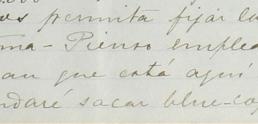 os permita fijar la
ma - Pienso emplea
au que está aquí
ndaré sacar blue-co